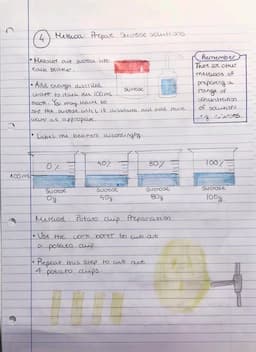 ④ Method Prepare Sucrose solutions
• Measure out sucrose into
each beaker.
• Add enough distilled
water to reach the 100ml
mark. You may have to
stir the sucrose until it dissolves and add more
water as appropriate.
• Label the beakers accordingly.
Sucrose
Remember
There are other
methods of
preparing a
range of
concentration
of solutions
e.g.
0% 40% 80% 100%
100ml
Sucrose Sucrose Sucrose Sucrose
0g 40g 80g 100g
Method Potato chip Preparation
• Use the cork borer to cut out
a potato chip
• Repeat this step to cut out
4 potato chips.